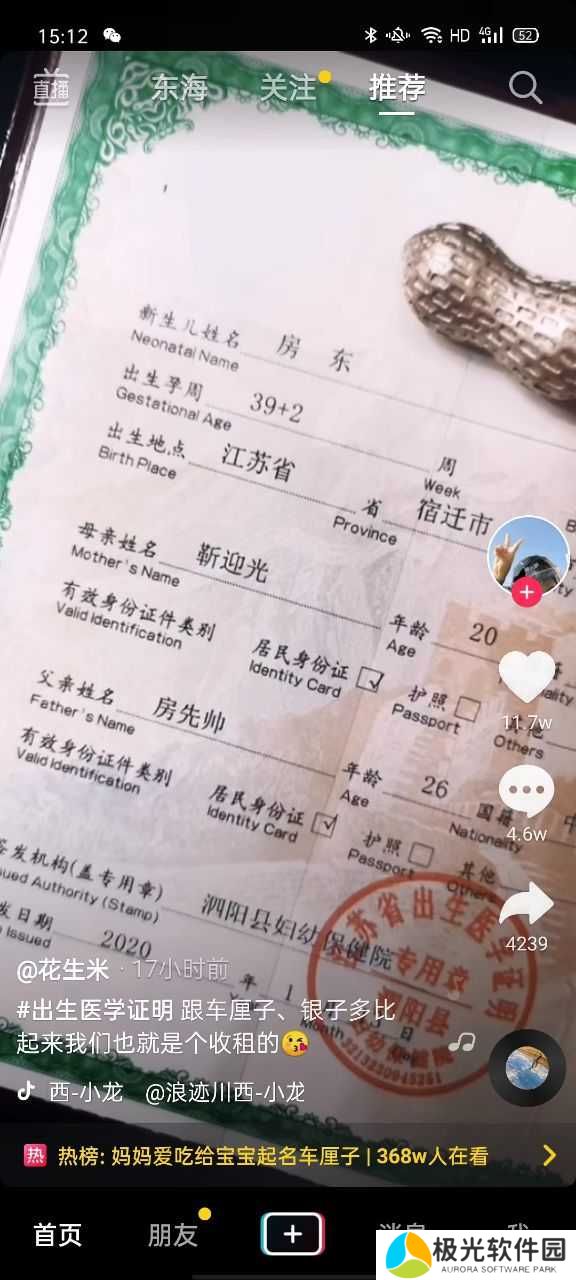 15:12 HD 4G 52
直播 东海 关注 推荐
新生儿姓名 房 东
Neonatal Name
出生孕周 39+2 周
Gestational Age Week
出生地点 江苏省 省 宿迁市
Birth Place Province
母亲姓名 靳迎光 年龄 20
Mother's Name Age
有效身份证件类别 居民身份证 护照
Valid Identification Identity Card Passport Others
11.7w
父亲姓名 房先帅 年龄 26 国籍 中
Father's Name Age Nationality
有效身份证件类别 居民身份证 护照 其他
Valid Identification Identity Card Passport Others
4.6w
签发机构(盖专用章) 泗阳县妇幼保健院
Issued Authority (Stamp)
4239
2020 年 1
出生医学证明
专用章
泗阳县
@花生米 · 17小时前
#出生医学证明 跟车厘子、银子多比
起来我们也就是个收租的😘
西-小龙 @浪迹川西-小龙
热 热榜: 妈妈爱吃给宝宝起名车厘子 | 368w人在看
首页 朋友 消息 我
极光软件园
AURORA SOFTWARE PARK